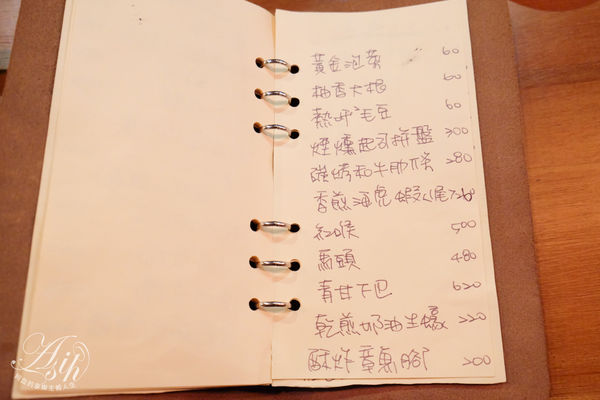 黃金泡菜 60
柚香大根 60
熱呼毛豆 60
煙燻起司拼盤 300
碳烤和牛肋條 280
香煎海虎蝦(2尾) 260
紅喉 500
馬頭 480
青甘下巴 620
乾煎奶油生蠔 220
酥炸章魚腳 200
Asih